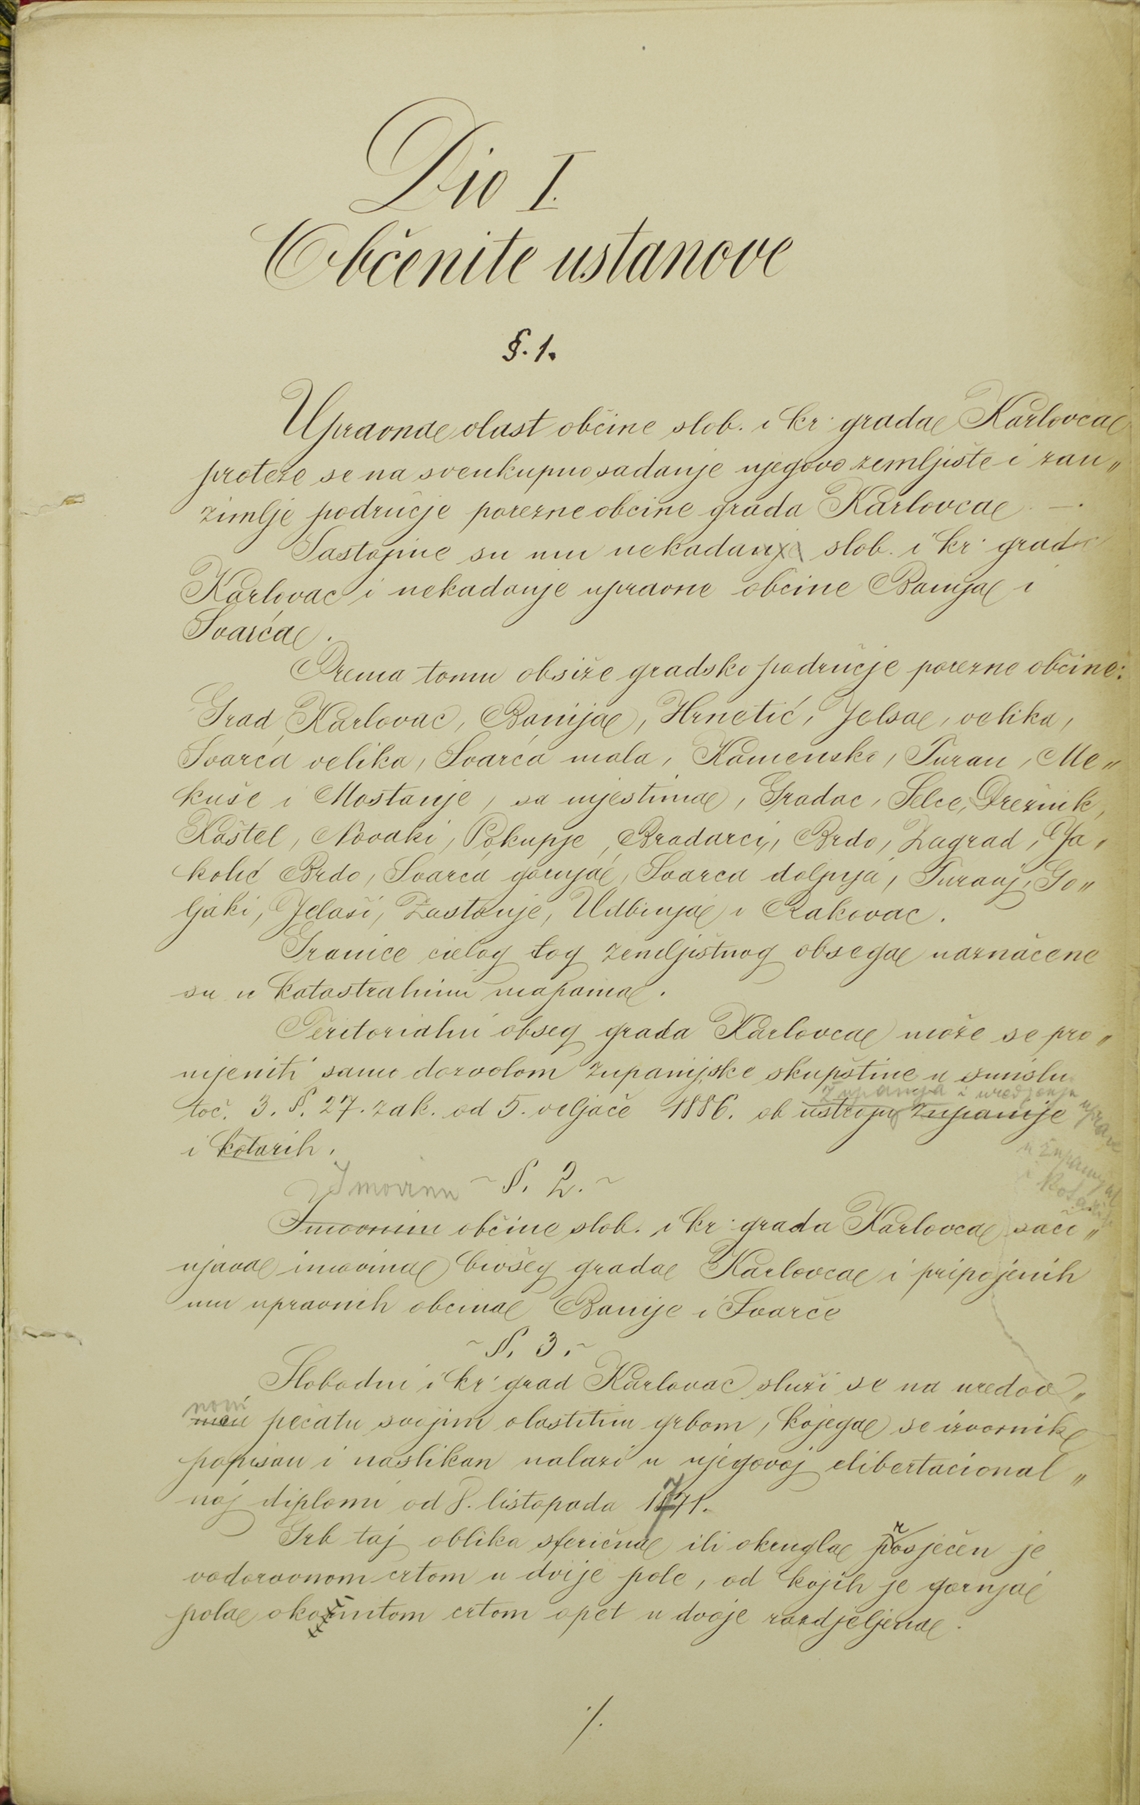 Dio I.
Občenite ustanove
§. 1.
Upravna vlast občine slob. i kr. grada Karlovca
proteže se na sveukupno sadanje njegovo zemljište i zau„
zimlje područje porezne obćine grada Karlovca —.
Sastojine su mu nekadanji slob. i kr. grad
Karlovac i nekadanje upravne obćine Banija i
Švarča.
Prema tomu obsiže gradsko područje porezne občine:
Grad Karlovac, Banija, Hrnetić, Jelsa, velika,
Švarča velika, Švarča mala, Kamensko, Turan, Me„
kuše i Mostanje, sa mjestima, Gradac, Selce, Drežnik,
Kaštel, Novaki, Pokupje, Brodarci, Brdo, Zagrad, Ja„
kolić Brdo, Švarča gornja, Švarca dolnja, Turanj, Go„
ljaki, Jelaši, Zastanje, Udbinja i Rakovac.
Granice cielog tog zemljištnog obsega naznačene
su u katastralnim mapama.
Teritorialni obseg grada Karlovca može se pro„
mjeniti samo dozvolom županijske skupštine u smislu
županija i uredjenju uprave
toč. 3. §. 27. zak. od 5. veljače 1886. ob ustroju županije
u županijah
i kotarih.
i kotarih
Imovinu ~ §. 2. ~
Imovinu občine slob. i kr. grada Karlovca sači„
njava imovina bivšeg grada Karlovca i pripojenih
mu upravnih obcina Banije i Švarče
~ §. 3. ~
Slobodni i kr. grad Karlovac služi se na uredov„
nom
pečatu svojim vlastitim grbom, kojega se izvornik
popisan i naslikan nalazi u njegovoj elibertacional„
noj diplomi od 8. listopada 1771.
Grb taj oblika sferična ili okrugla presječen je
vodoravnom crtom u dvije pole, od kojih je gornja
pola okomitom crtom opet u dvoje razdjeljena.
./.